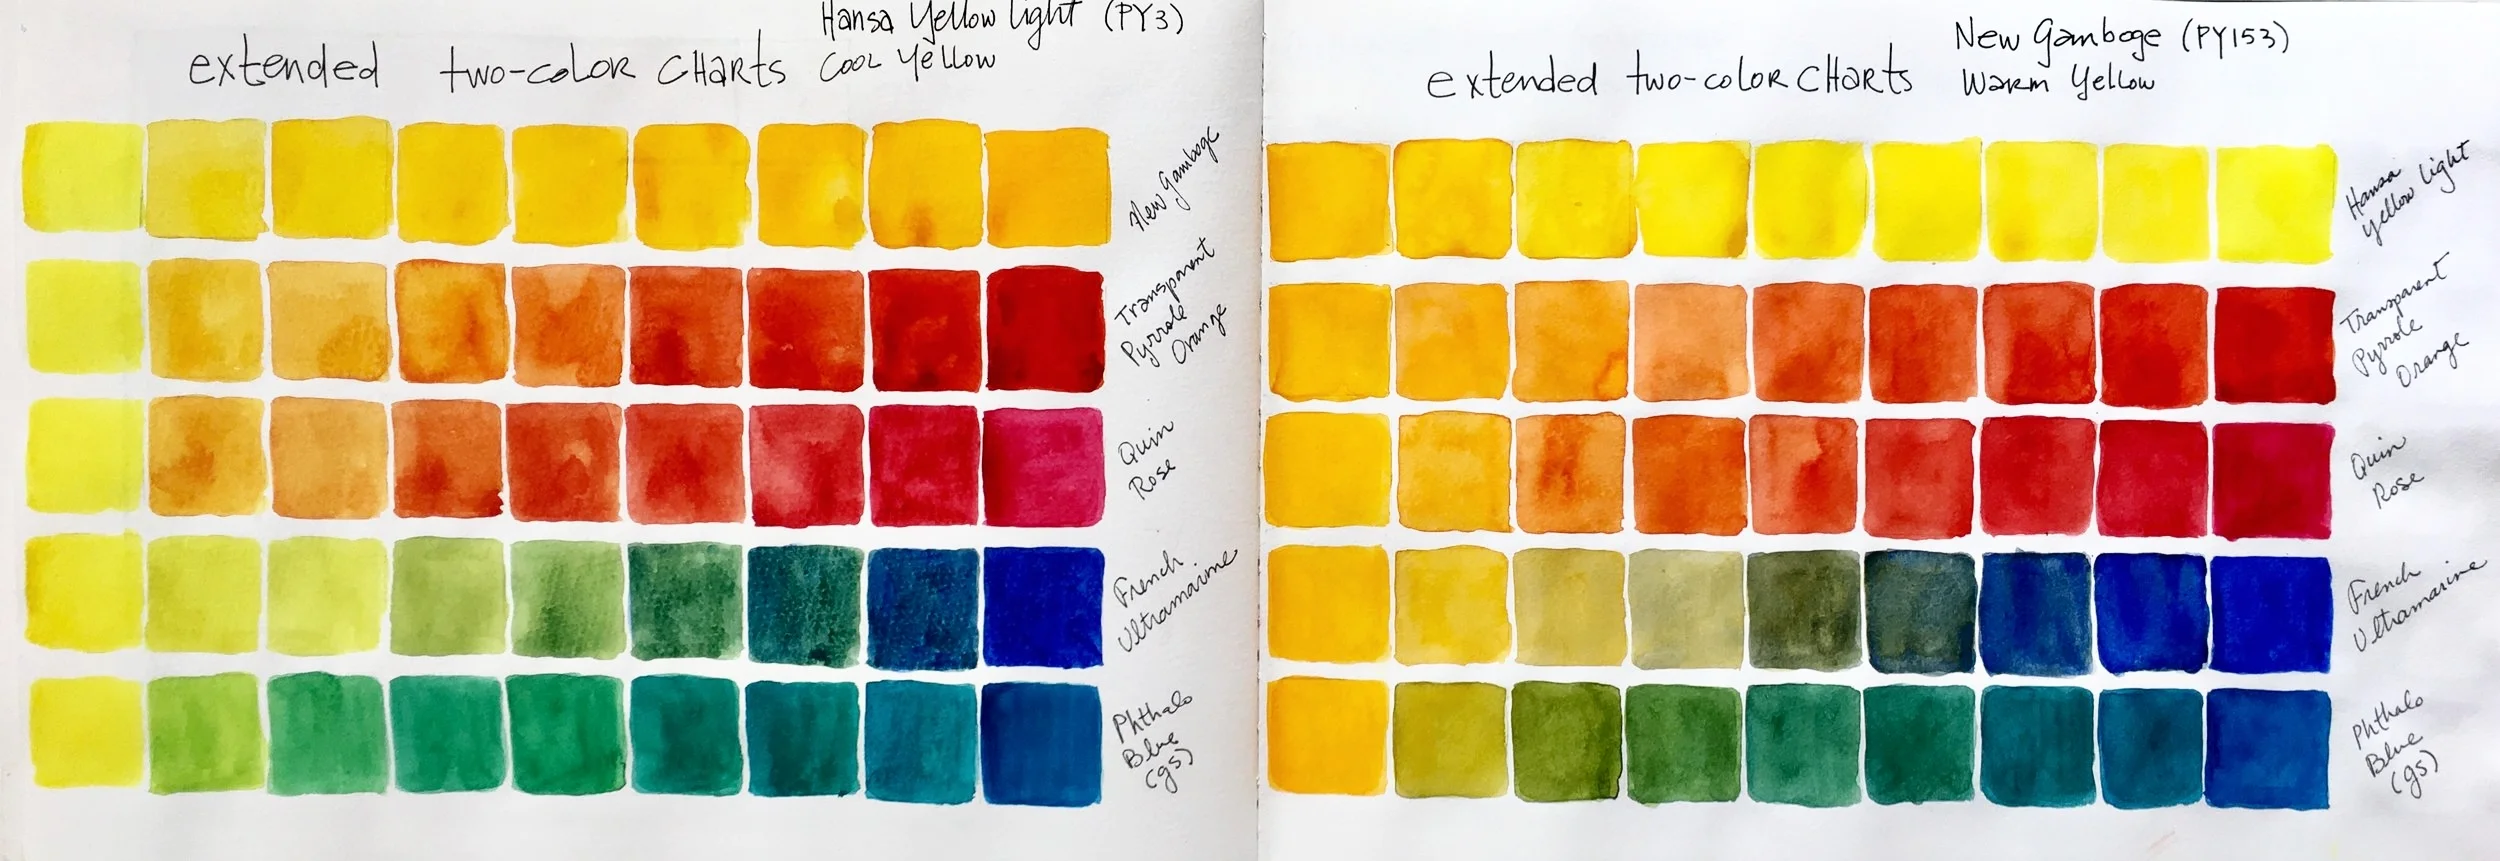 Hansa Yellow Light (PY3)
extended two-color charts Cool Yellow
New Gamboge
Transparent
Pyrrole
Orange
Quin
Rose
French
Ultramarine
Phthalo
Blue
(gs)
New Gamboge (PY153)
extended two-color charts Warm Yellow
Hansa
Yellow Light
Transparent
Pyrrole
Orange
Quin
Rose
French
Ultramarine
Phthalo
Blue
(gs)